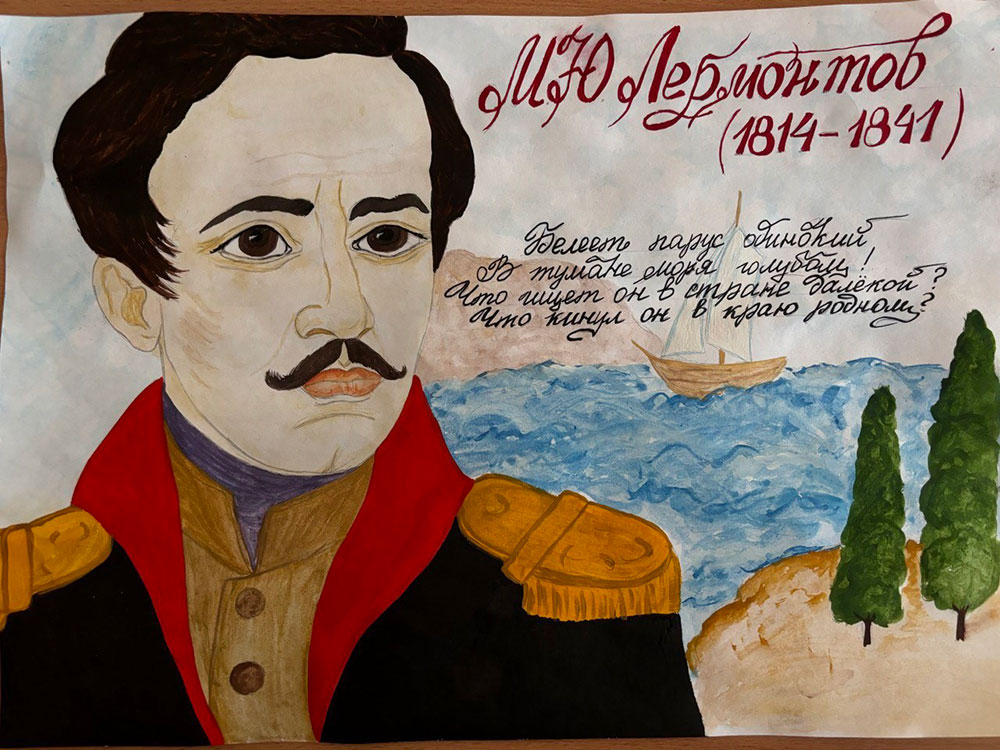 М Ю Лермонтов
(1814-1841)
Белеет парус одинокий
В тумане моря голубом!
Что ищет он в стране далёкой?
Что кинул он в краю родном?